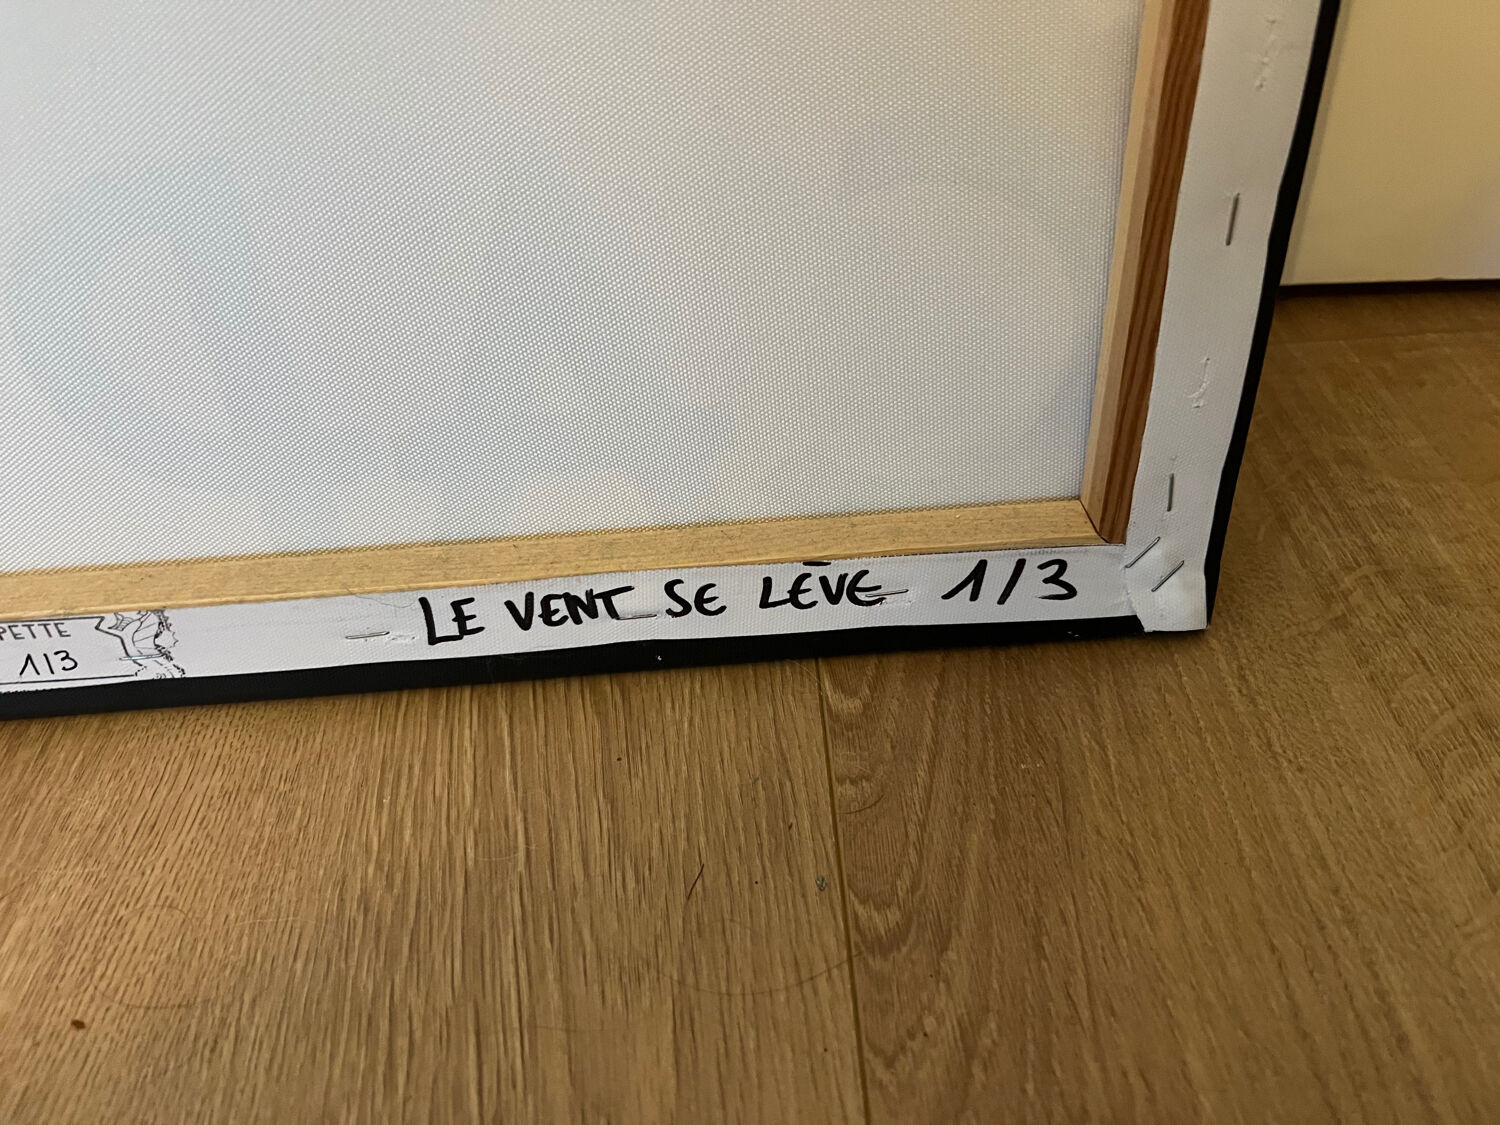 LE VENT SE LÈVE 1/3
PETTE
1/3